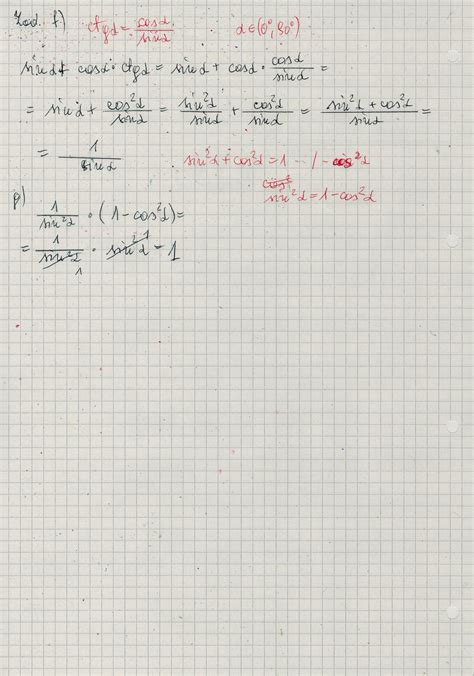 Zad. f) ctgα = cosα/sinα α∈(0°, 90°)
sinα + cosα · ctgα = sinα + cosα · cosα/sinα =
= sinα + cos²α/sinα = sin²α/sinα + cos²α/sinα = sin²α + cos²α/sinα =
= 1/sinα sin²α + cos²α = 1 /- cos²α
sin²α = 1 - cos²α
p) 1/sin²α · (1 - cos²α) =
= 1/sin²α · sin²α = 1